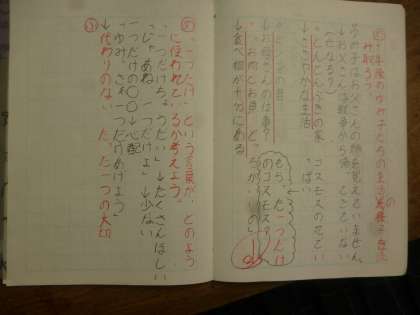 十年後のゆみ子たちの生活の様子を読み取ろう。
ゆみ子はお父さんの顔を覚えていません。
↓お父さんは戦争から帰ってきていない
とんとんぶきの家 コスモスの花でいっぱい
↓ささやかな生活
お母さんの仕事?
お肉とお魚と、どっちがいいの
↓食べ物が十分にある
もらった一つだけのコスモス
⑤「一つだけ」という言葉が、どのように使われているか考えよう。
「一つだけちょうだい」→たくさんほしい
「じゃあね、一つだけよ」→少ない
一つだけの〇〇→心配
「ゆみ。さあ、一つだけあげよう」
↓代わりのない、たった一つの大切